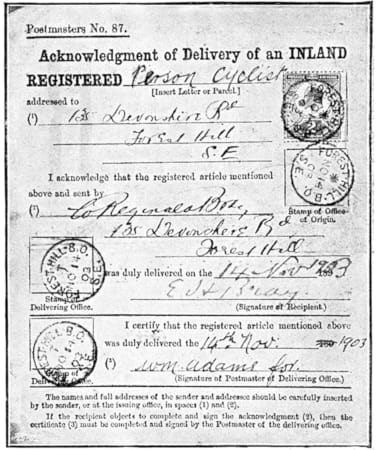 Postmasters No. 87.
Acknowledgment of Delivery of an INLAND
REGISTERED Person Cyclist
[Insert Letter or Parcel.]
addressed to
(¹) 135 Devonshire Rd
Forest Hill
S.E
I acknowledge that the registered article mentioned
above and sent by
(²) Co Reginald Bray
135 Devonshire Rd
Forest Hill
was duly delivered on the 14 Nov 1903
(Signature of Recipient.)
Stamp of Office
of Origin.
FOREST-HILL-B.O.
S.E
Stamp of
Delivering Office.
I certify that the registered article mentioned above
was duly delivered the 14th Nov. 1903
(³) Wm Adams for.
(Signature of Postmaster of Delivering Office.)
FOREST-HILL-B.O.
Stamp of
Delivering Office.
The names and full addresses of the sender and addressee should be carefully inserted
by the sender, or at the issuing office, in spaces (1) and (2).
If the recipient objects to complete and sign the acknowledgment (2), then the
certificate (3) must be completed and signed by the Postmaster of the delivering office.